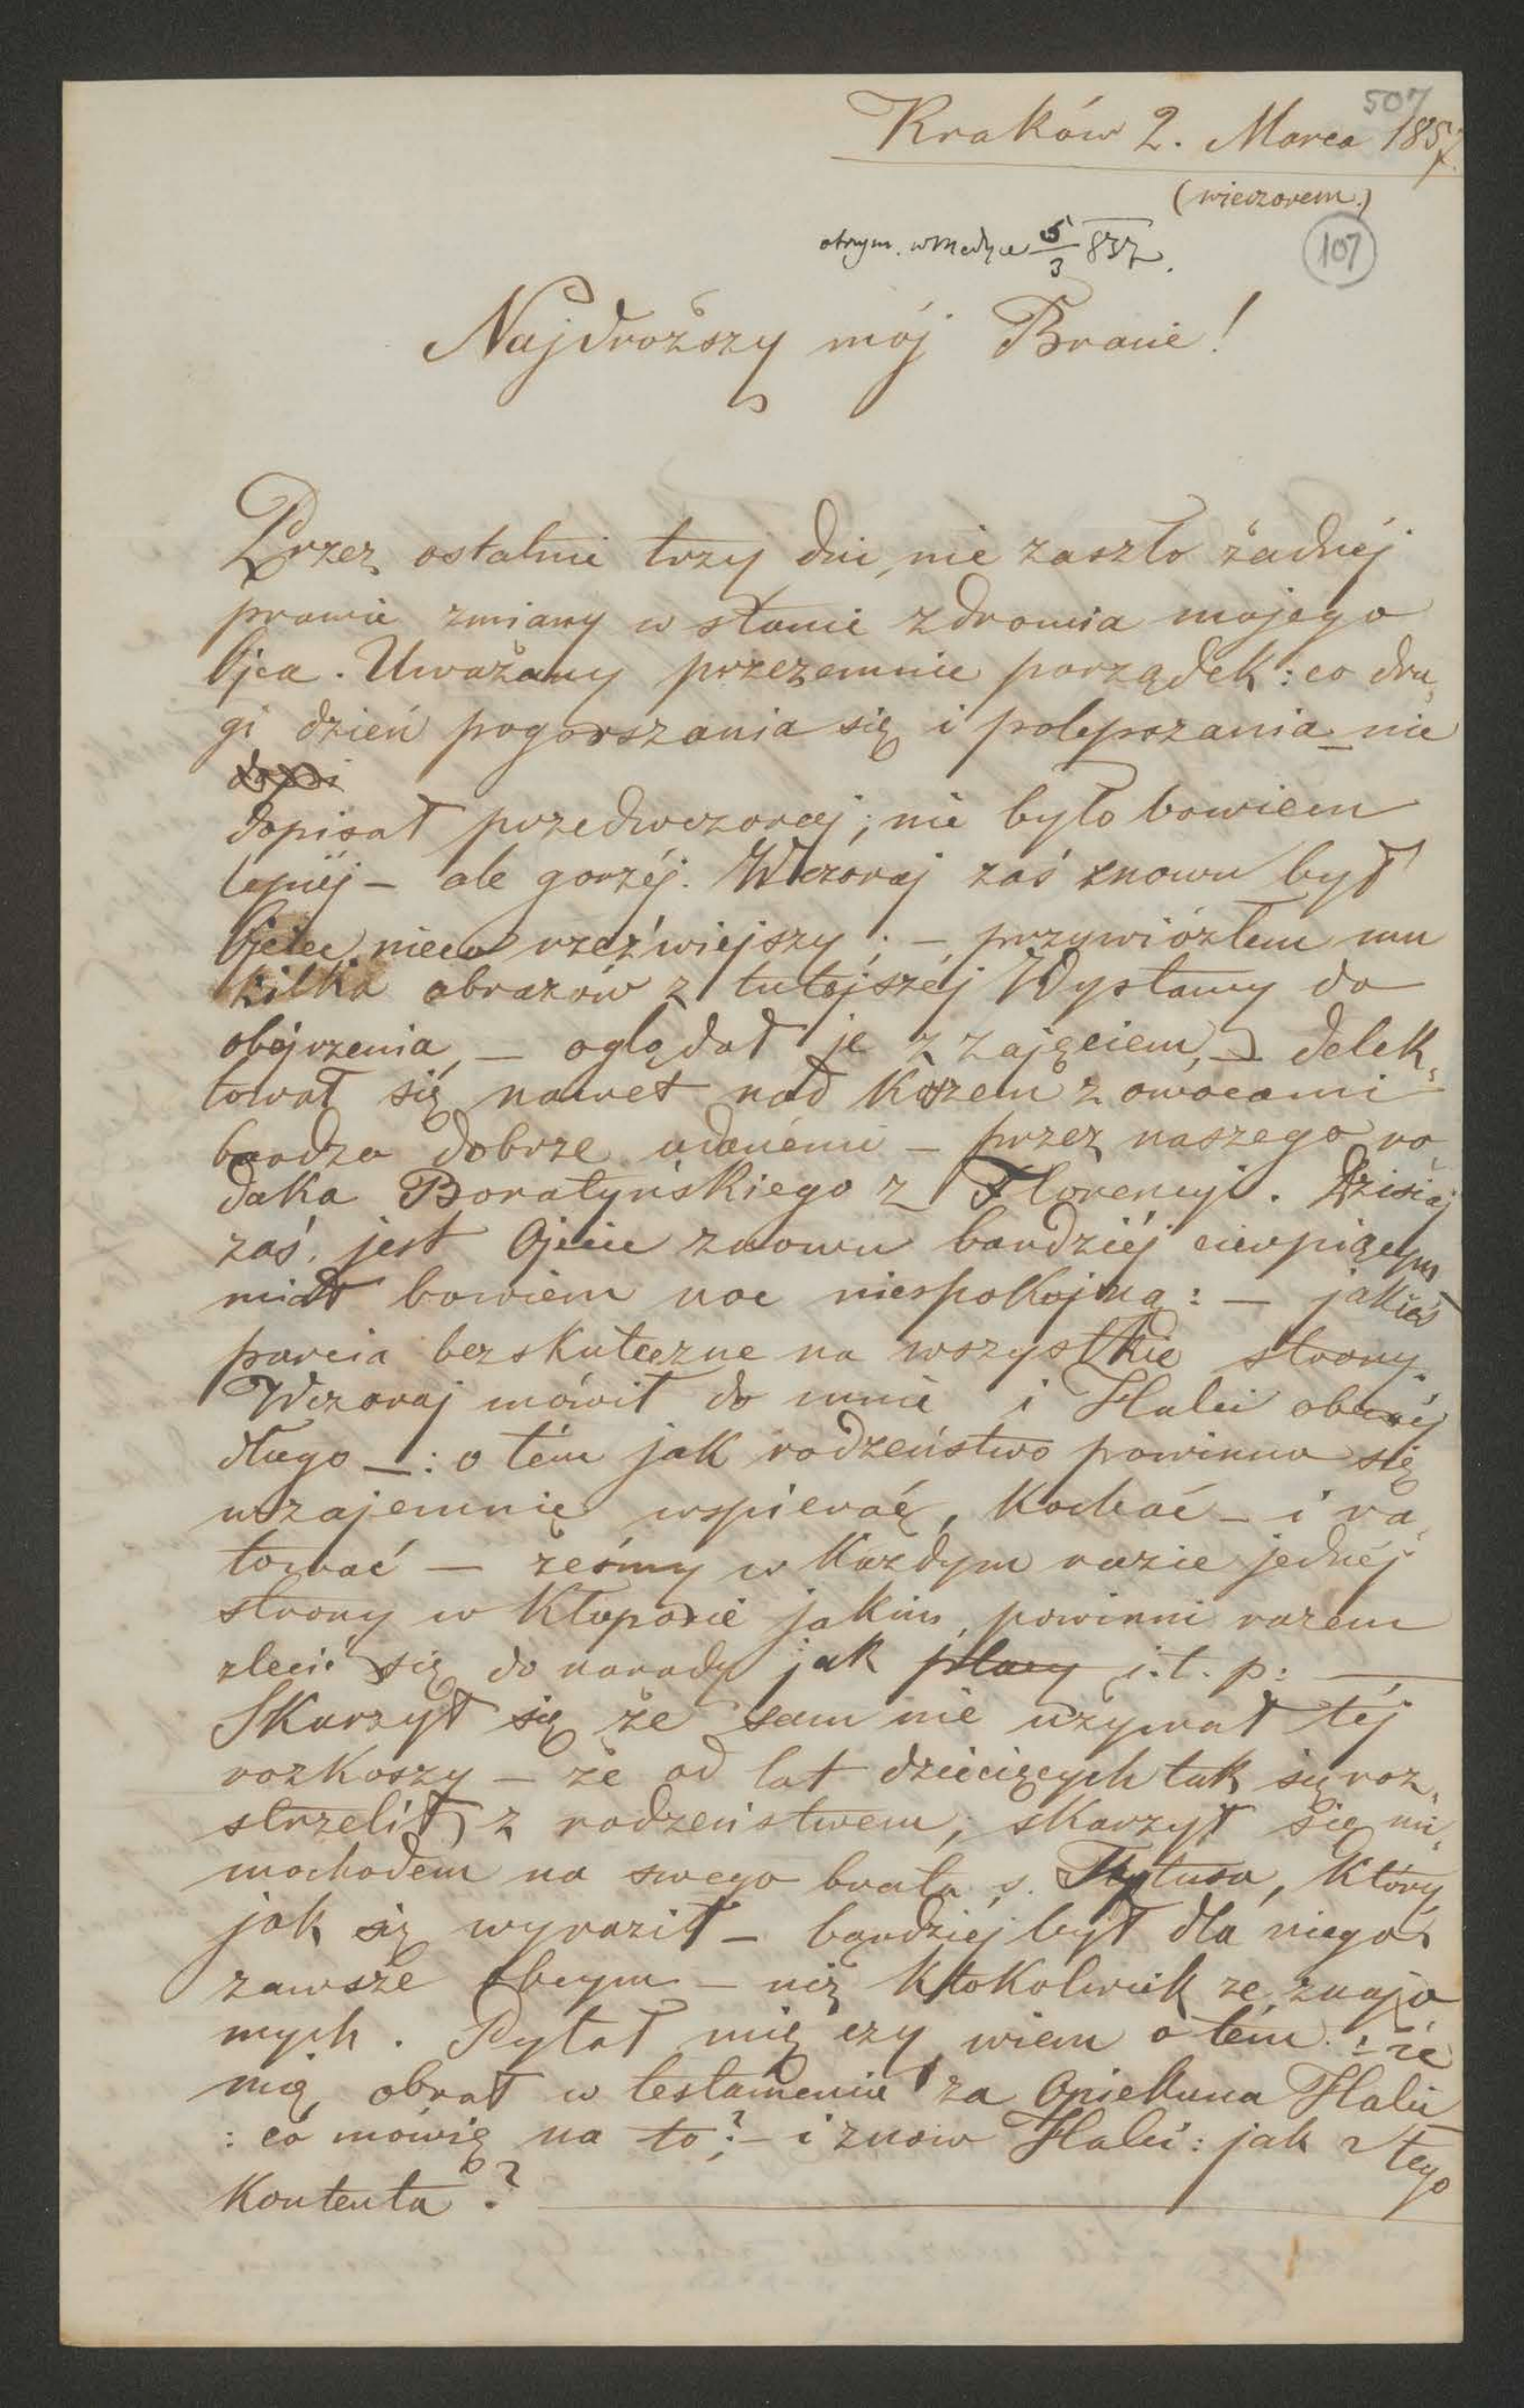 507
Kraków 2. Marca 1857.
(wieczorem.)
otrzym. w Medyce 5/3 857.
107
Najdroższy mój Bracie!
Przez ostatnie trzy dni, nie zaszło żadnéj
prawie zmiany w stanie zdrowia mojego
Ojca. Uważany przezemnie porządek: co dru-
gi dzień pogorszania się i polepszania – nie
dopisał przedwczoraj; nie było bowiem
lepiéj – ale gorzéj. Wczoraj zaś znowu był
Ojciec nieco rzeźwiejszy; – przywiózłem mu
kilka obrazów z tutejszéj Wystawy do
obejrzenia, – oglądał je z zajęciem, – delek-
tował się nawet nad koszem z owocami
bardzo dobrze udanémi – przez naszego ro-
daka Boratyńskiego z Florencyi. Dzisiaj
zaś, jest Ojciec znowu bardziéj cierpiącym
miał bowiem noc niespokojną: – jakieś
parcia bezskuteczne na wszystkie strony.
Wczoraj mówił do mnie i Halci obecnéj
długo –: o tém jak rodzeństwo powinno się
wzajemnie wspierać, kochać – i ra-
tować – żeśmy w każdym razie jednéj
strony w kłopocie jakim, powinni razem
zlecić się do narady jak ptacy i. t. p: –
Skarzył się że sam nie używał téj
rozkoszy – że od lat dziecięcych tak się roz-
strzelił z rodzeństwem; skarzył się mi-
mochodem na swego brata ś. Tytusa, który
jak się wyraził – bardziéj był dla niego
zawsze obcym – niż ktokolwiek ze znajo
mych. Pytał mię czy wiem o tém: że
mię obrał w testamencie za Opiekuna Halci
: co mówię na to? – i znow Halci: jak z tego
kontenta?